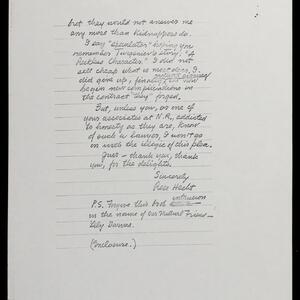 but they would not answer me
any more than kidnappers do.
I say "speculator" hoping you
remember Turgeniev's story, "A
Reckless Character." I did not
sell cheap what is most dear, I
did give up, finally,
begin new complications in
the contract "they" forged.
But, unless you, or one of
your associates at N.R., addicted
to honesty as they are, knows
of such a lawyer, I won't go
on with the illogic of this plea.
Just – thank you, thank
you, for the delights.
Sincerely
Rose Hecht
P.S. Forgive this bold
intrusion
in the name of our Mutual Friend –
Lily Darvas.
(Enclosure.)